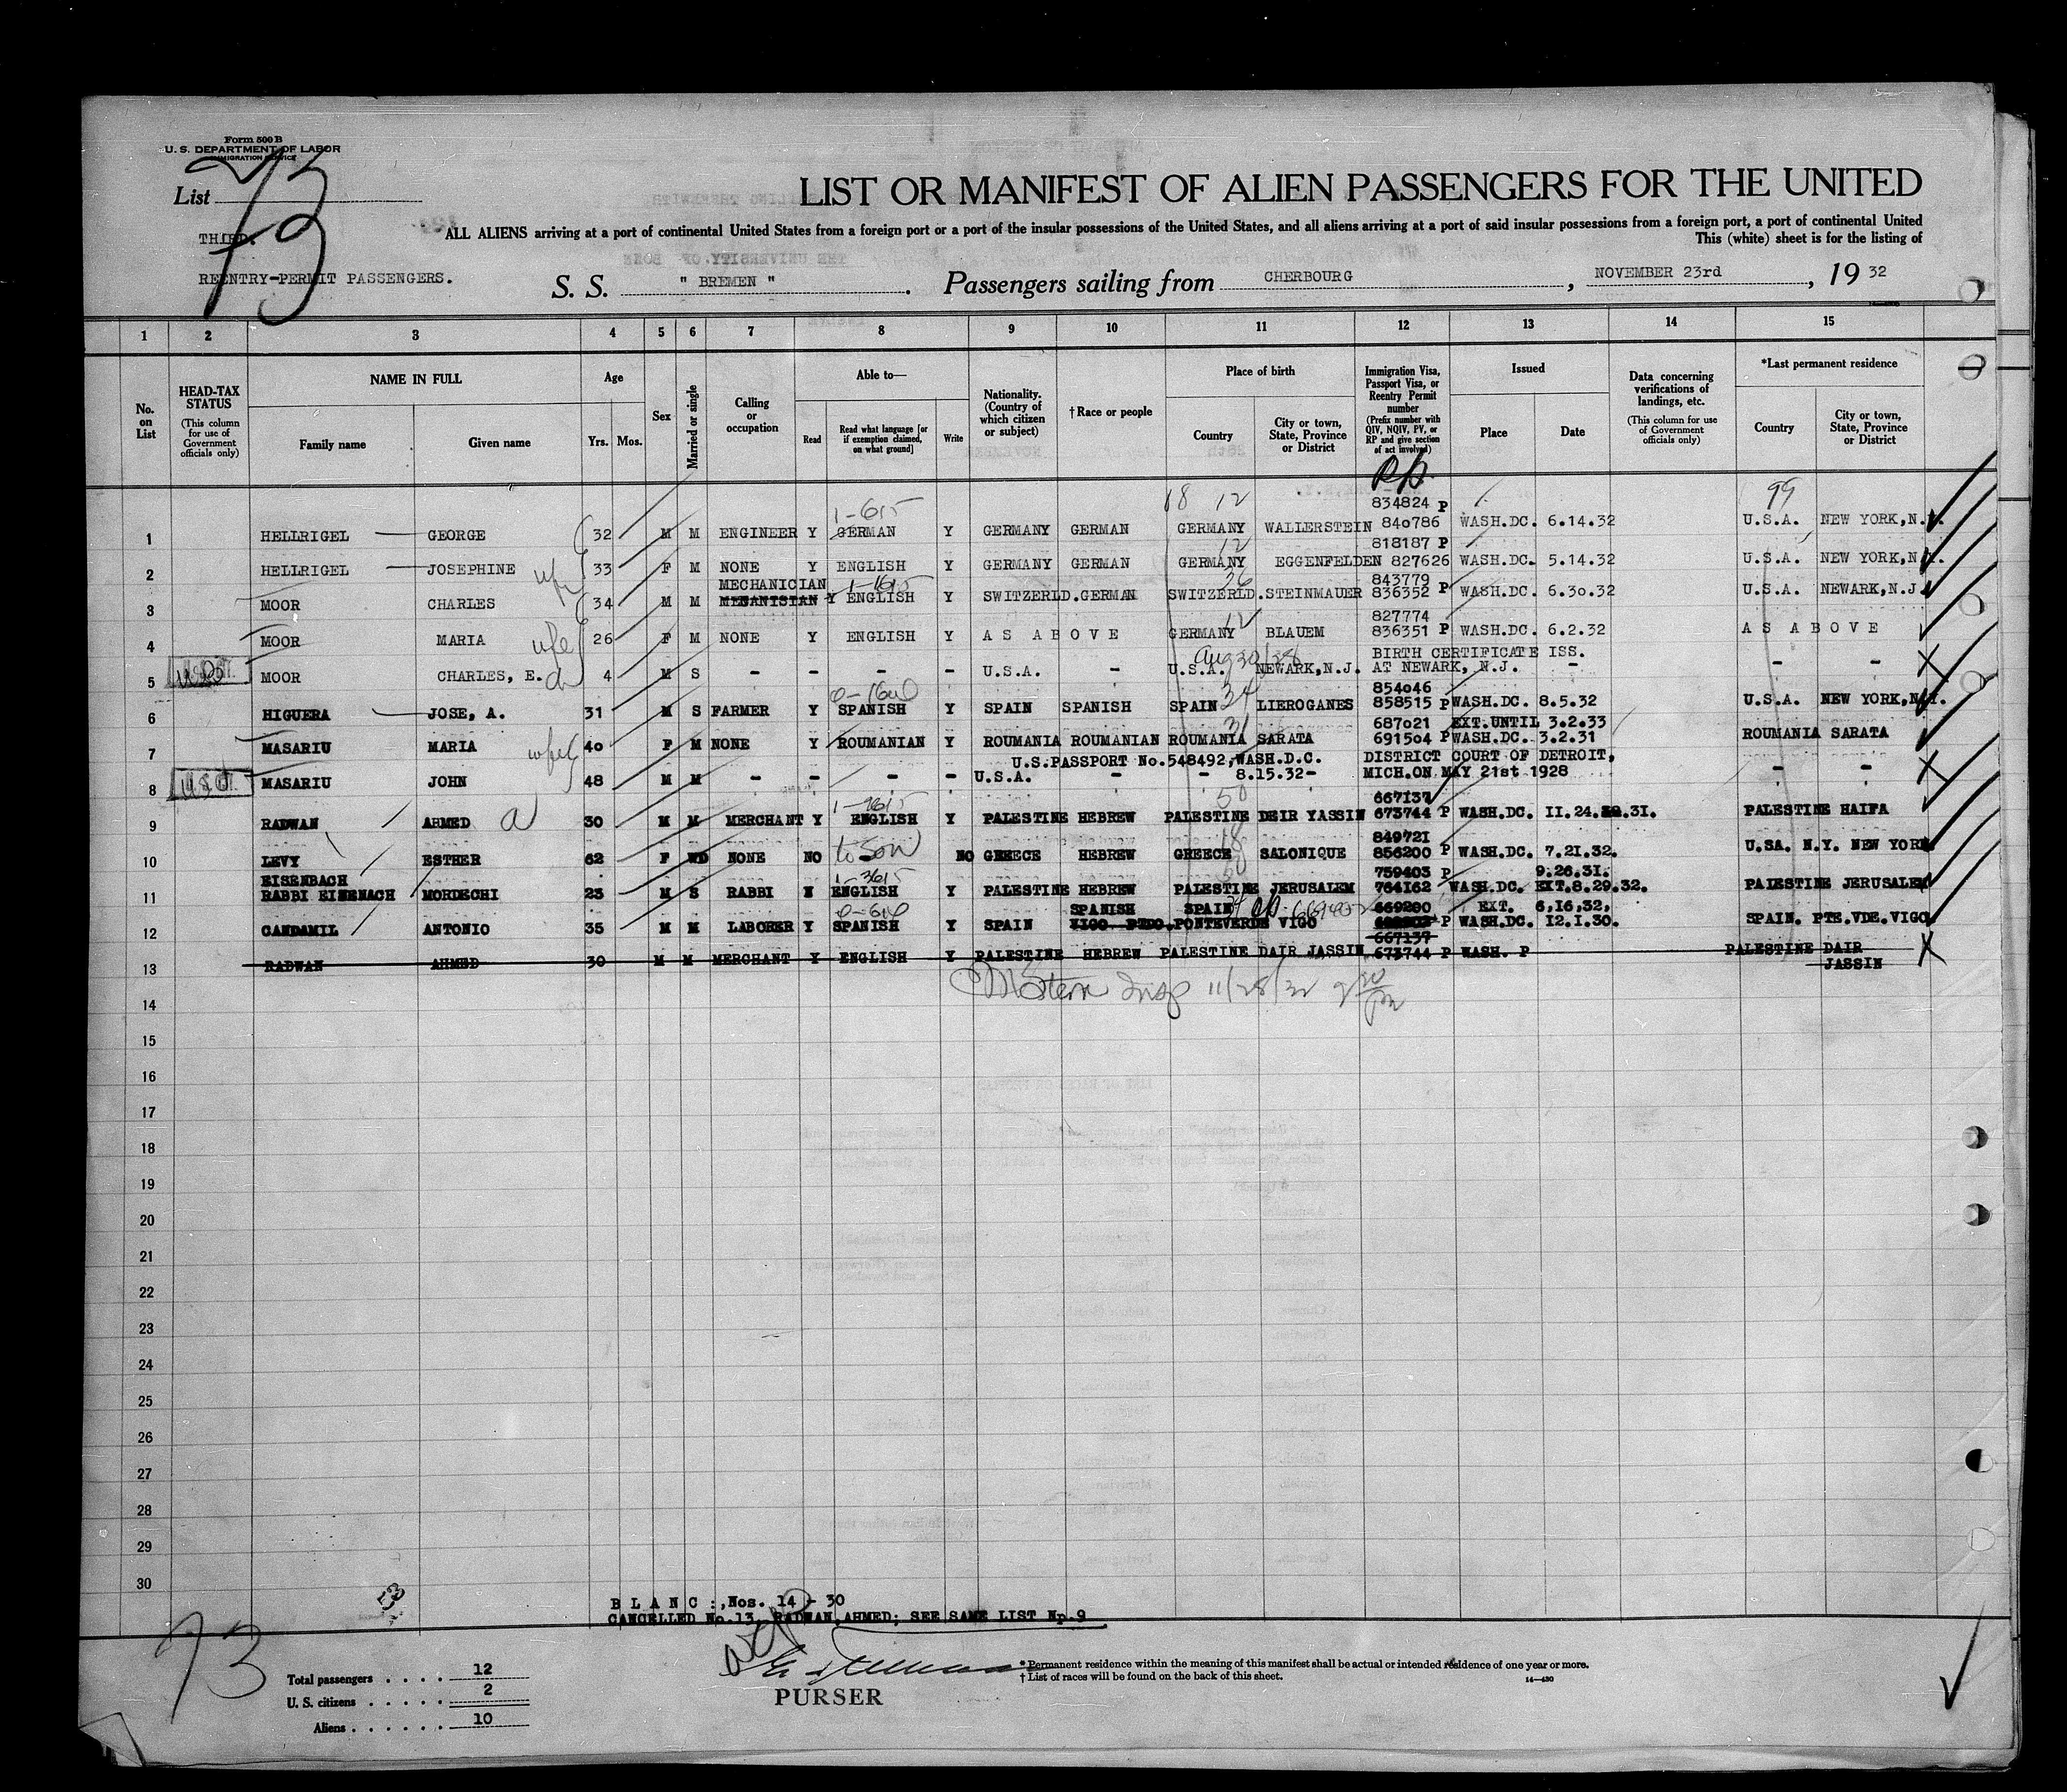 Form 500 B
U. S. DEPARTMENT OF LABOR
IMMIGRATION SERVICE
List 73
THIRD.
REENTRY-PERMIT PASSENGERS.
LIST OR MANIFEST OF ALIEN PASSENGERS FOR THE UNITED
ALL ALIENS arriving at a port of continental United States from a foreign port or a port of the insular possessions of the United States, and all aliens arriving at a port of said insular possessions from a foreign port, a port of continental United
This (white) sheet is for the listing of
S. S. " BREMEN ". Passengers sailing from CHERBOURG, NOVEMBER 23rd, 19 32
1 2 3 4 5 6 7 8 9 10 11 12 13 14 15
No. on List
HEAD-TAX STATUS
(This column for use of Government officials only)
NAME IN FULL
Family name
Given name
Age
Yrs. Mos.
Sex
Married or single
Calling or occupation
Able to—
Read
Read what language [or if exemption claimed, on what ground]
Write
Nationality. (Country of which citizen or subject)
†Race or people
Place of birth
Country
City or town, State, Province or District
Immigration Visa, Passport Visa, or Reentry Permit number
(Prefix number with QIV, NQIV, PV, or RP and give section of act involved)
Issued
Place
Date
Data concerning verifications of landings, etc.
(This column for use of Government officials only)
*Last permanent residence
Country
City or town, State, Province or District
RP
18 12 834824 P 99
1-615
1 HELLRIGEL GEORGE 32 M M ENGINEER Y GERMAN Y GERMANY GERMAN GERMANY WALLERSTEIN 840786 WASH.DC. 6.14.32 U.S.A. NEW YORK,N.Y.
12 818187 P
2 HELLRIGEL JOSEPHINE wife 33 F M NONE Y ENGLISH Y GERMANY GERMAN GERMANY EGGENFELDEN 827626 WASH.DC. 5.14.32 U.S.A. NEW YORK,N.Y.
MECHANICIAN 1-1615 36 843779
3 MOOR CHARLES 34 M M Y ENGLISH Y SWITZERLD.GERMAN SWITZERLD.STEINMAUER 836352 P WASH.DC. 6.30.32 U.S.A. NEWARK,N.J.
12 827774
4 MOOR MARIA wife 26 F M NONE Y ENGLISH Y AS ABOVE GERMANY BLAUEM 836351 P WASH.DC. 6.2.32 AS ABOVE
Aug 30/28 BIRTH CERTIFICATE ISS.
5 MOOR CHARLES, E. 4 M S - - - - U.S.A. - U.S.A. NEWARK,N.J. AT NEWARK, N.J. - - -
34 854046
6 HIGUERA JOSE, A. 31 M S FARMER Y SPANISH Y SPAIN SPANISH SPAIN LIEROGANES 858515 P WASH.DC. 8.5.32 U.S.A. NEW YORK,N.Y.
31 687021 EXT.UNTIL 3.2.33
7 MASARIU MARIA wife 40 F M NONE Y ROUMANIAN Y ROUMANIA ROUMANIAN ROUMANIA SARATA 691504 P WASH.DC. 3.2.31 ROUMANIA SARATA
U.S.PASSPORT No.548492,WASH.D.C. DISTRICT COURT OF DETROIT,
8 MASARIU JOHN 48 M M - - - - U.S.A. - - 8.15.32- MICH.ON MAY 21st 1928 - -
50 667137
9 RADWAN AHMED 30 M M MERCHANT Y ENGLISH Y PALESTINE HEBREW PALESTINE DEIR YASSIN 673744 P WASH.DC. II.24.31. PALESTINE HAIFA
849721
10 LEVY ESTHER 62 F WD NONE NO to son NO GREECE HEBREW GREECE SALONIQUE 856200 P WASH.DC. 7.21.32. U.SA. N.Y. NEW YORK
EISENBACH 1-3615 759403 P 9.26.31.
11 RABBI EISENACH MORDECHI 23 M S RABBI Y ENGLISH Y PALESTINE HEBREW PALESTINE JERUSALEM 764162 WASH.DC. EXT.8.29.32. PALESTINE JERUSALEM
SPANISH SPAIN 669200 EXT. 6,16,32,
12 CANDAMIL ANTONIO 35 M M LABORER Y SPANISH Y SPAIN VIGO PTDO.PONTEVERDE VIGO P WASH.DC. 12.1.30. SPAIN. PTE.VDE.VIGO.
667137
13 RADWAN AHMED 30 M M MERCHANT Y ENGLISH Y PALESTINE HEBREW PALESTINE DAIR JASSIN 673744 P WASH. P PALESTINE DAIR JASSIN
Stern Insp 11/28/32
14
15
16
17
18
19
20
21
22
23
24
25
26
27
28
29
30
B L A N C :,Nos. 14 - 30
CANCELLED No.13, RADWAN AHMED; SEE SAME LIST No.9
73
Total passengers 12
U. S. citizens 2
Aliens 10
PURSER
* Permanent residence within the meaning of this manifest shall be actual or intended residence of one year or more.
† List of races will be found on the back of this sheet.
14—430